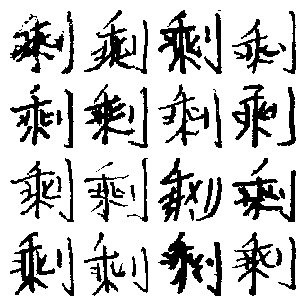 剩剩剩剩
剩剩剩剩
剩剩剩剩
剩剩剩剩